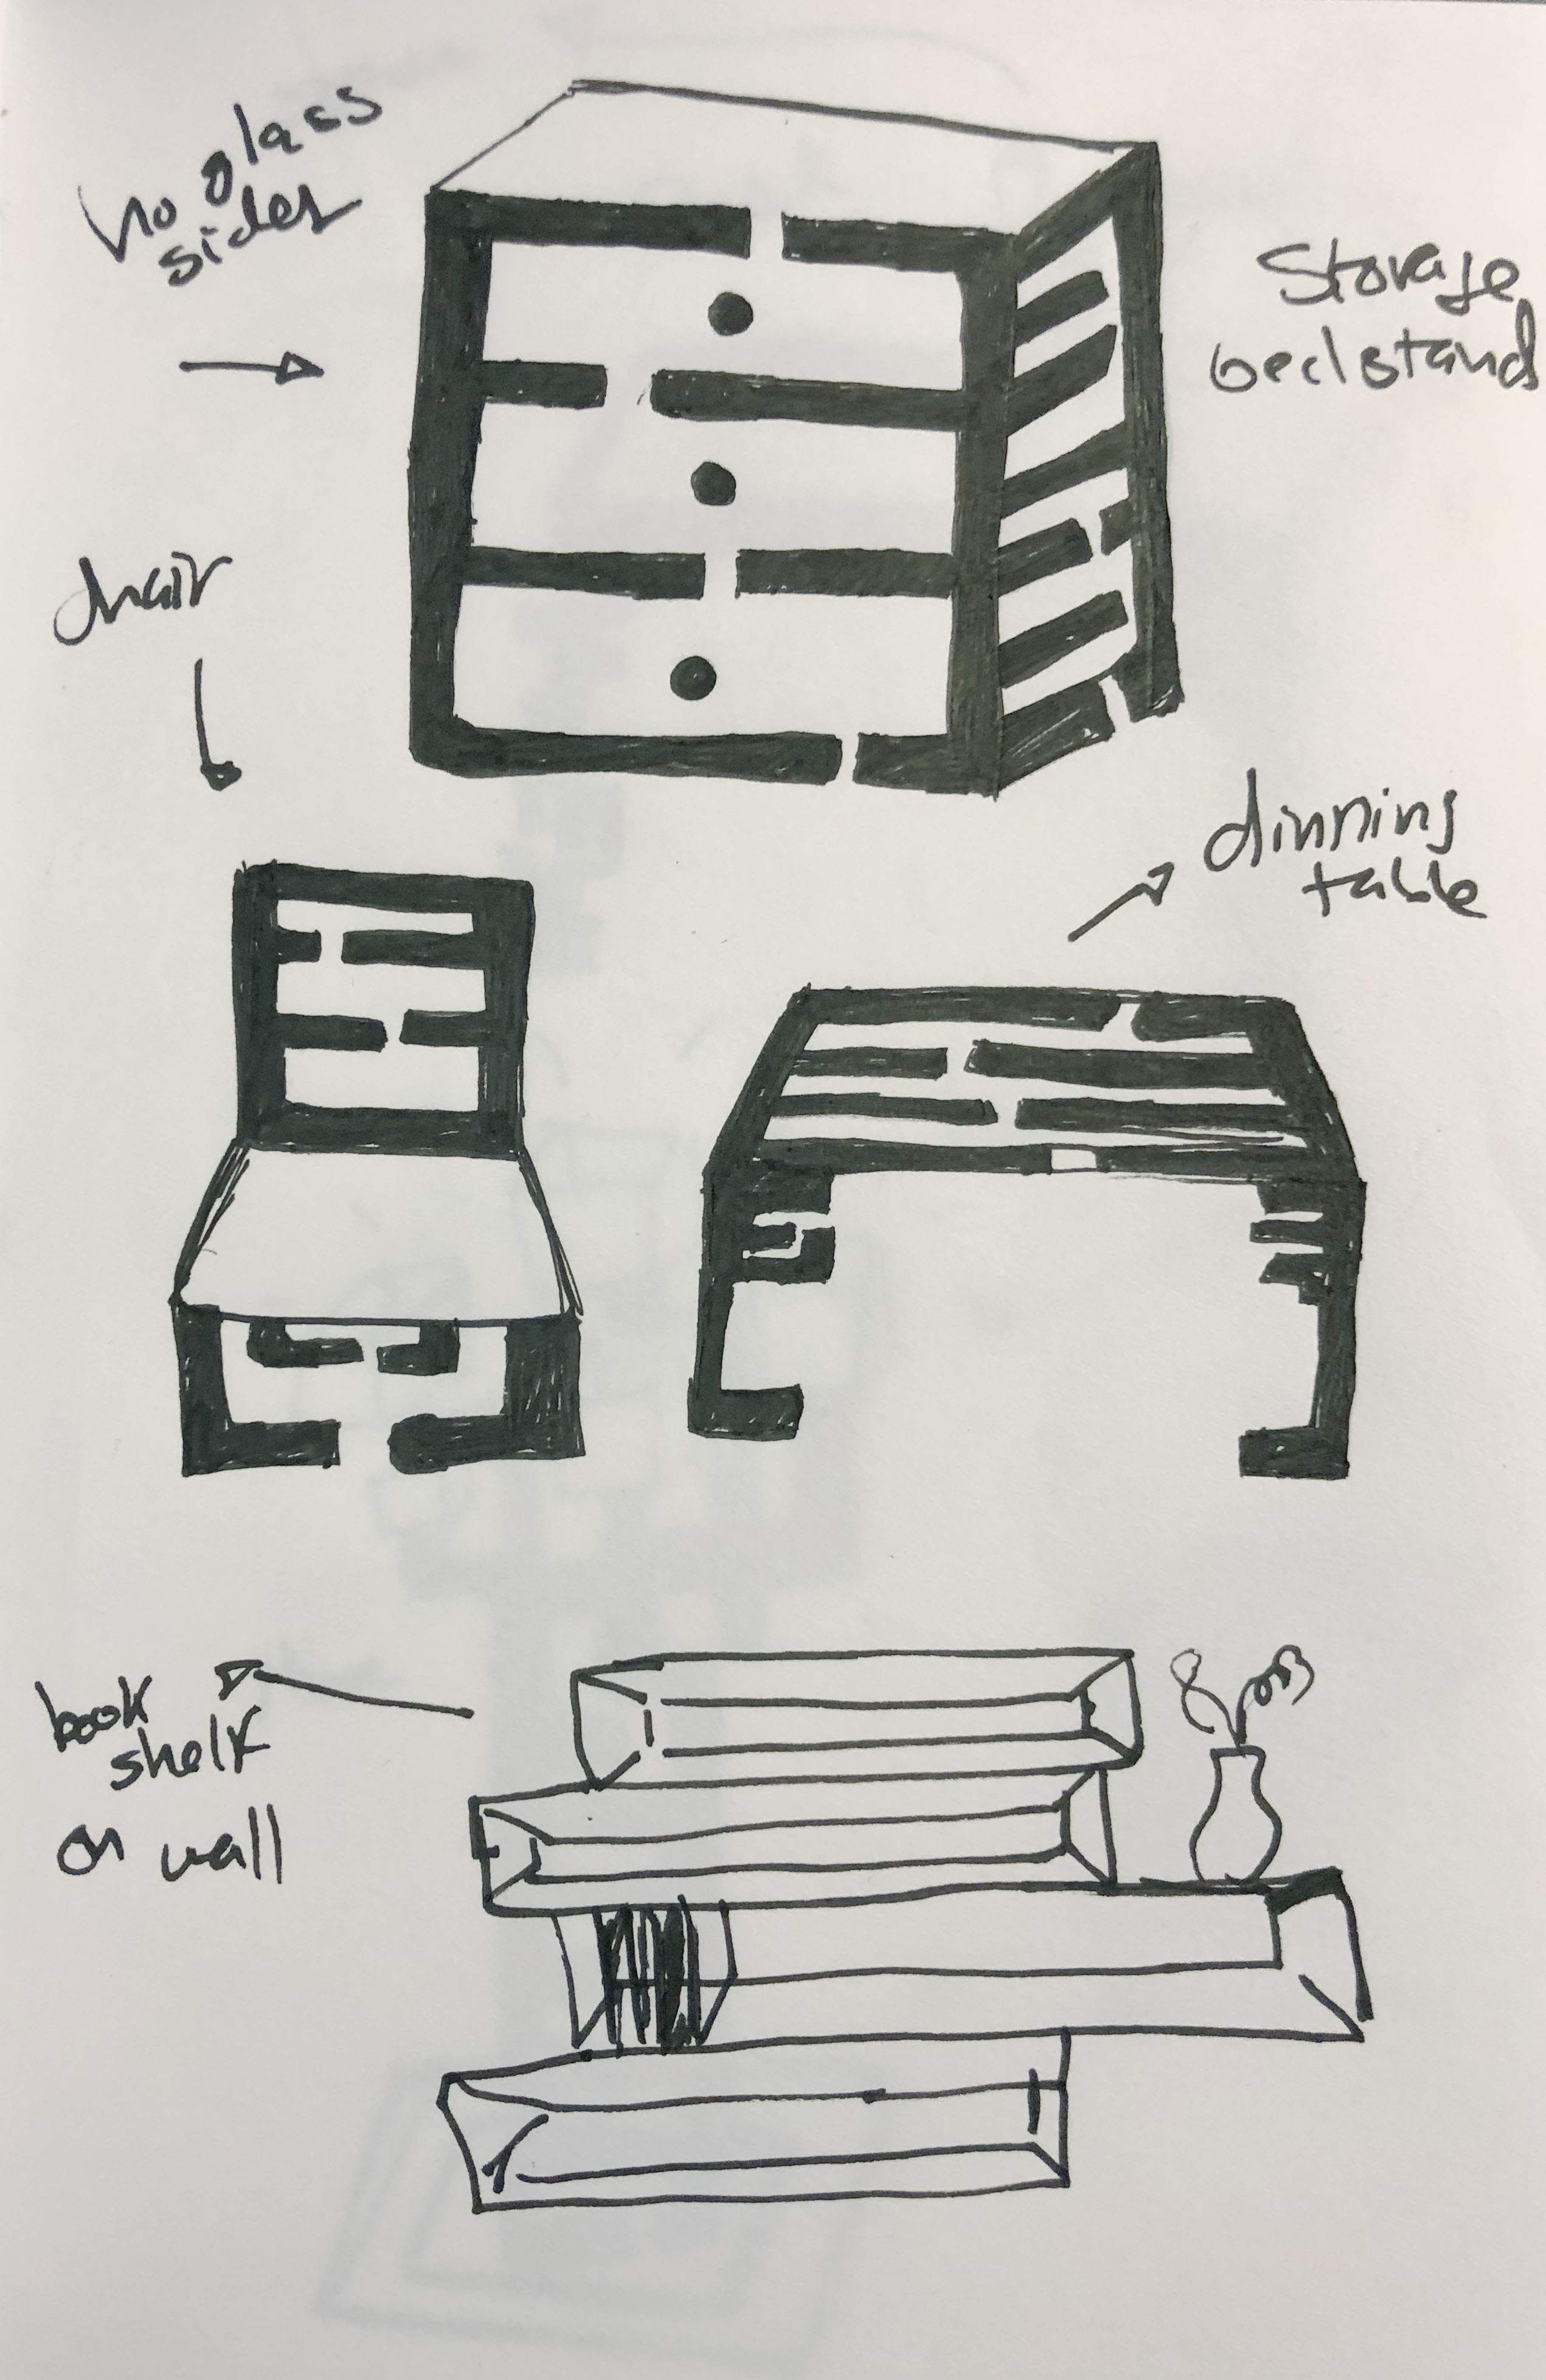 no glass
sides
Storage
bedstand
chair
dinning
table
book
shelf
on wall